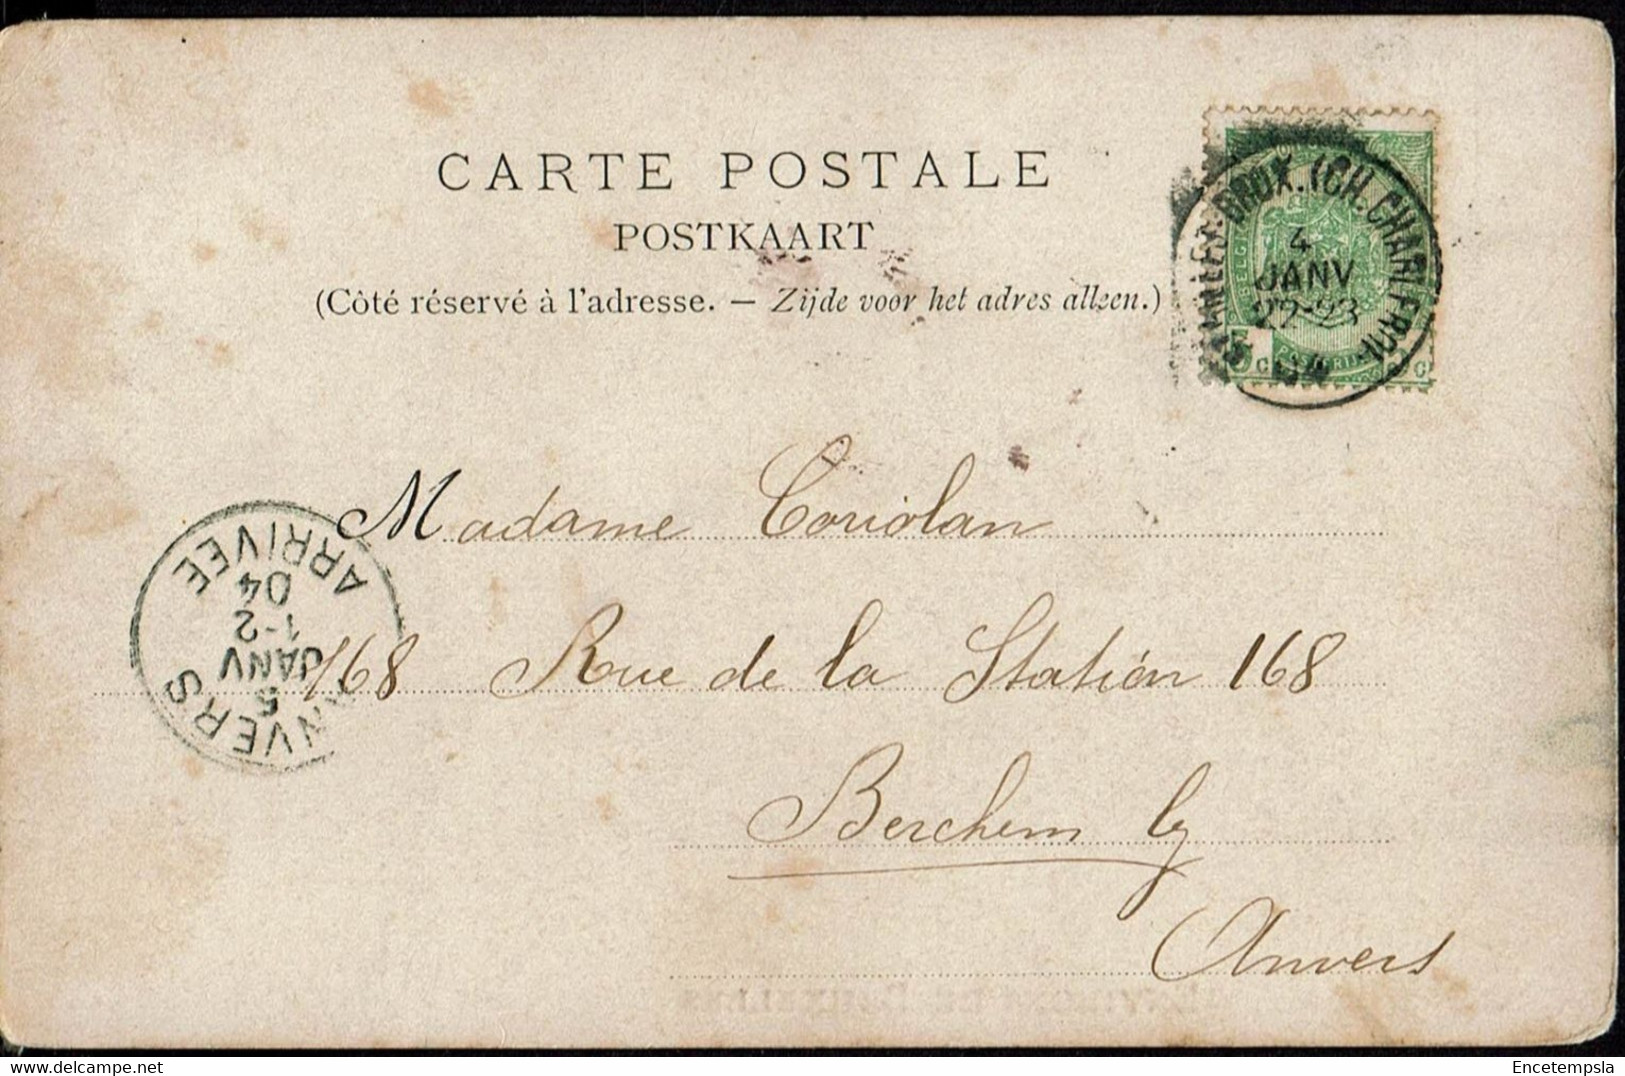 CARTE POSTALE
POSTKAART
(Côté réservé à l'adresse. — Zijde voor het adres alleen.)
BRUX. (CH. CHARLEROI
4
JANV
22-23
04
5 C C
Madame Coriolan
168 Rue de la Station 168
Berchem lg
Anvers
ANVERS
5
JANV
1-2
04
ARRIVEE
Encetempsla